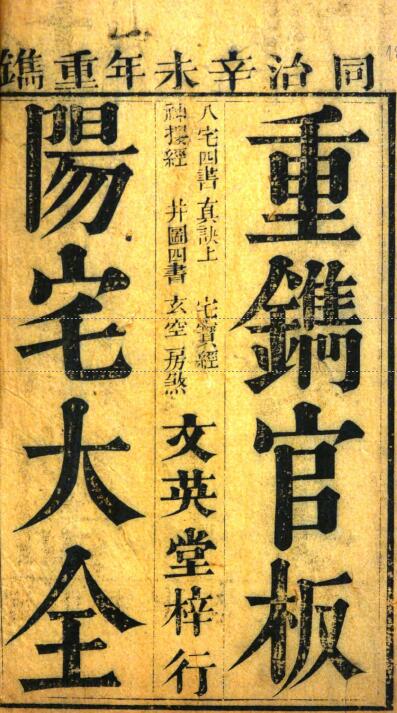 同治辛未年重鐫
重鐫官板
八宅四書 真訣上 宅寶經
神搜經 井圖四書 玄空房煞
文英堂梓行
陽宅大全